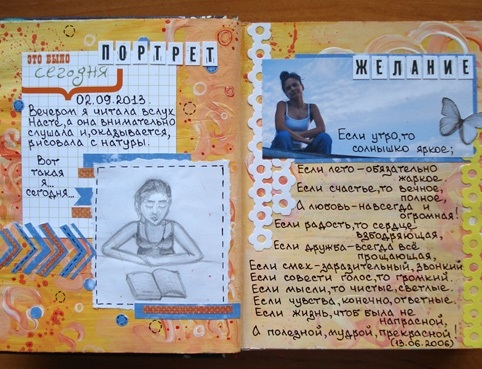 ПОРТРЕТ
ЭТО БЫЛО
сегодня
02.09.2013.
Вечером я читала вслух
Насте, а она внимательно
слушала и, оказывается,
рисовала с натуры.
Вот
такая
я...
сегодня...
ЖЕЛАНИЕ
Если утро, то
солнышко яркое;
Если лето - обязательно
жаркое.
Если счастье, то вечное,
полное,
А любовь - навсегда и
огромная!
Если радость, то сердце
взбодряющая,
Если дружба - всегда всё
прощающая,
Если смех - заразительный, звонкий
Если совести голос, то громкий.
Если мысли, то чистые, светлые.
Если чувства, конечно, ответные.
Если жизнь, чтоб была не
напрасной,
А полезной, мудрой, прекрасной!
(13.06.2006)